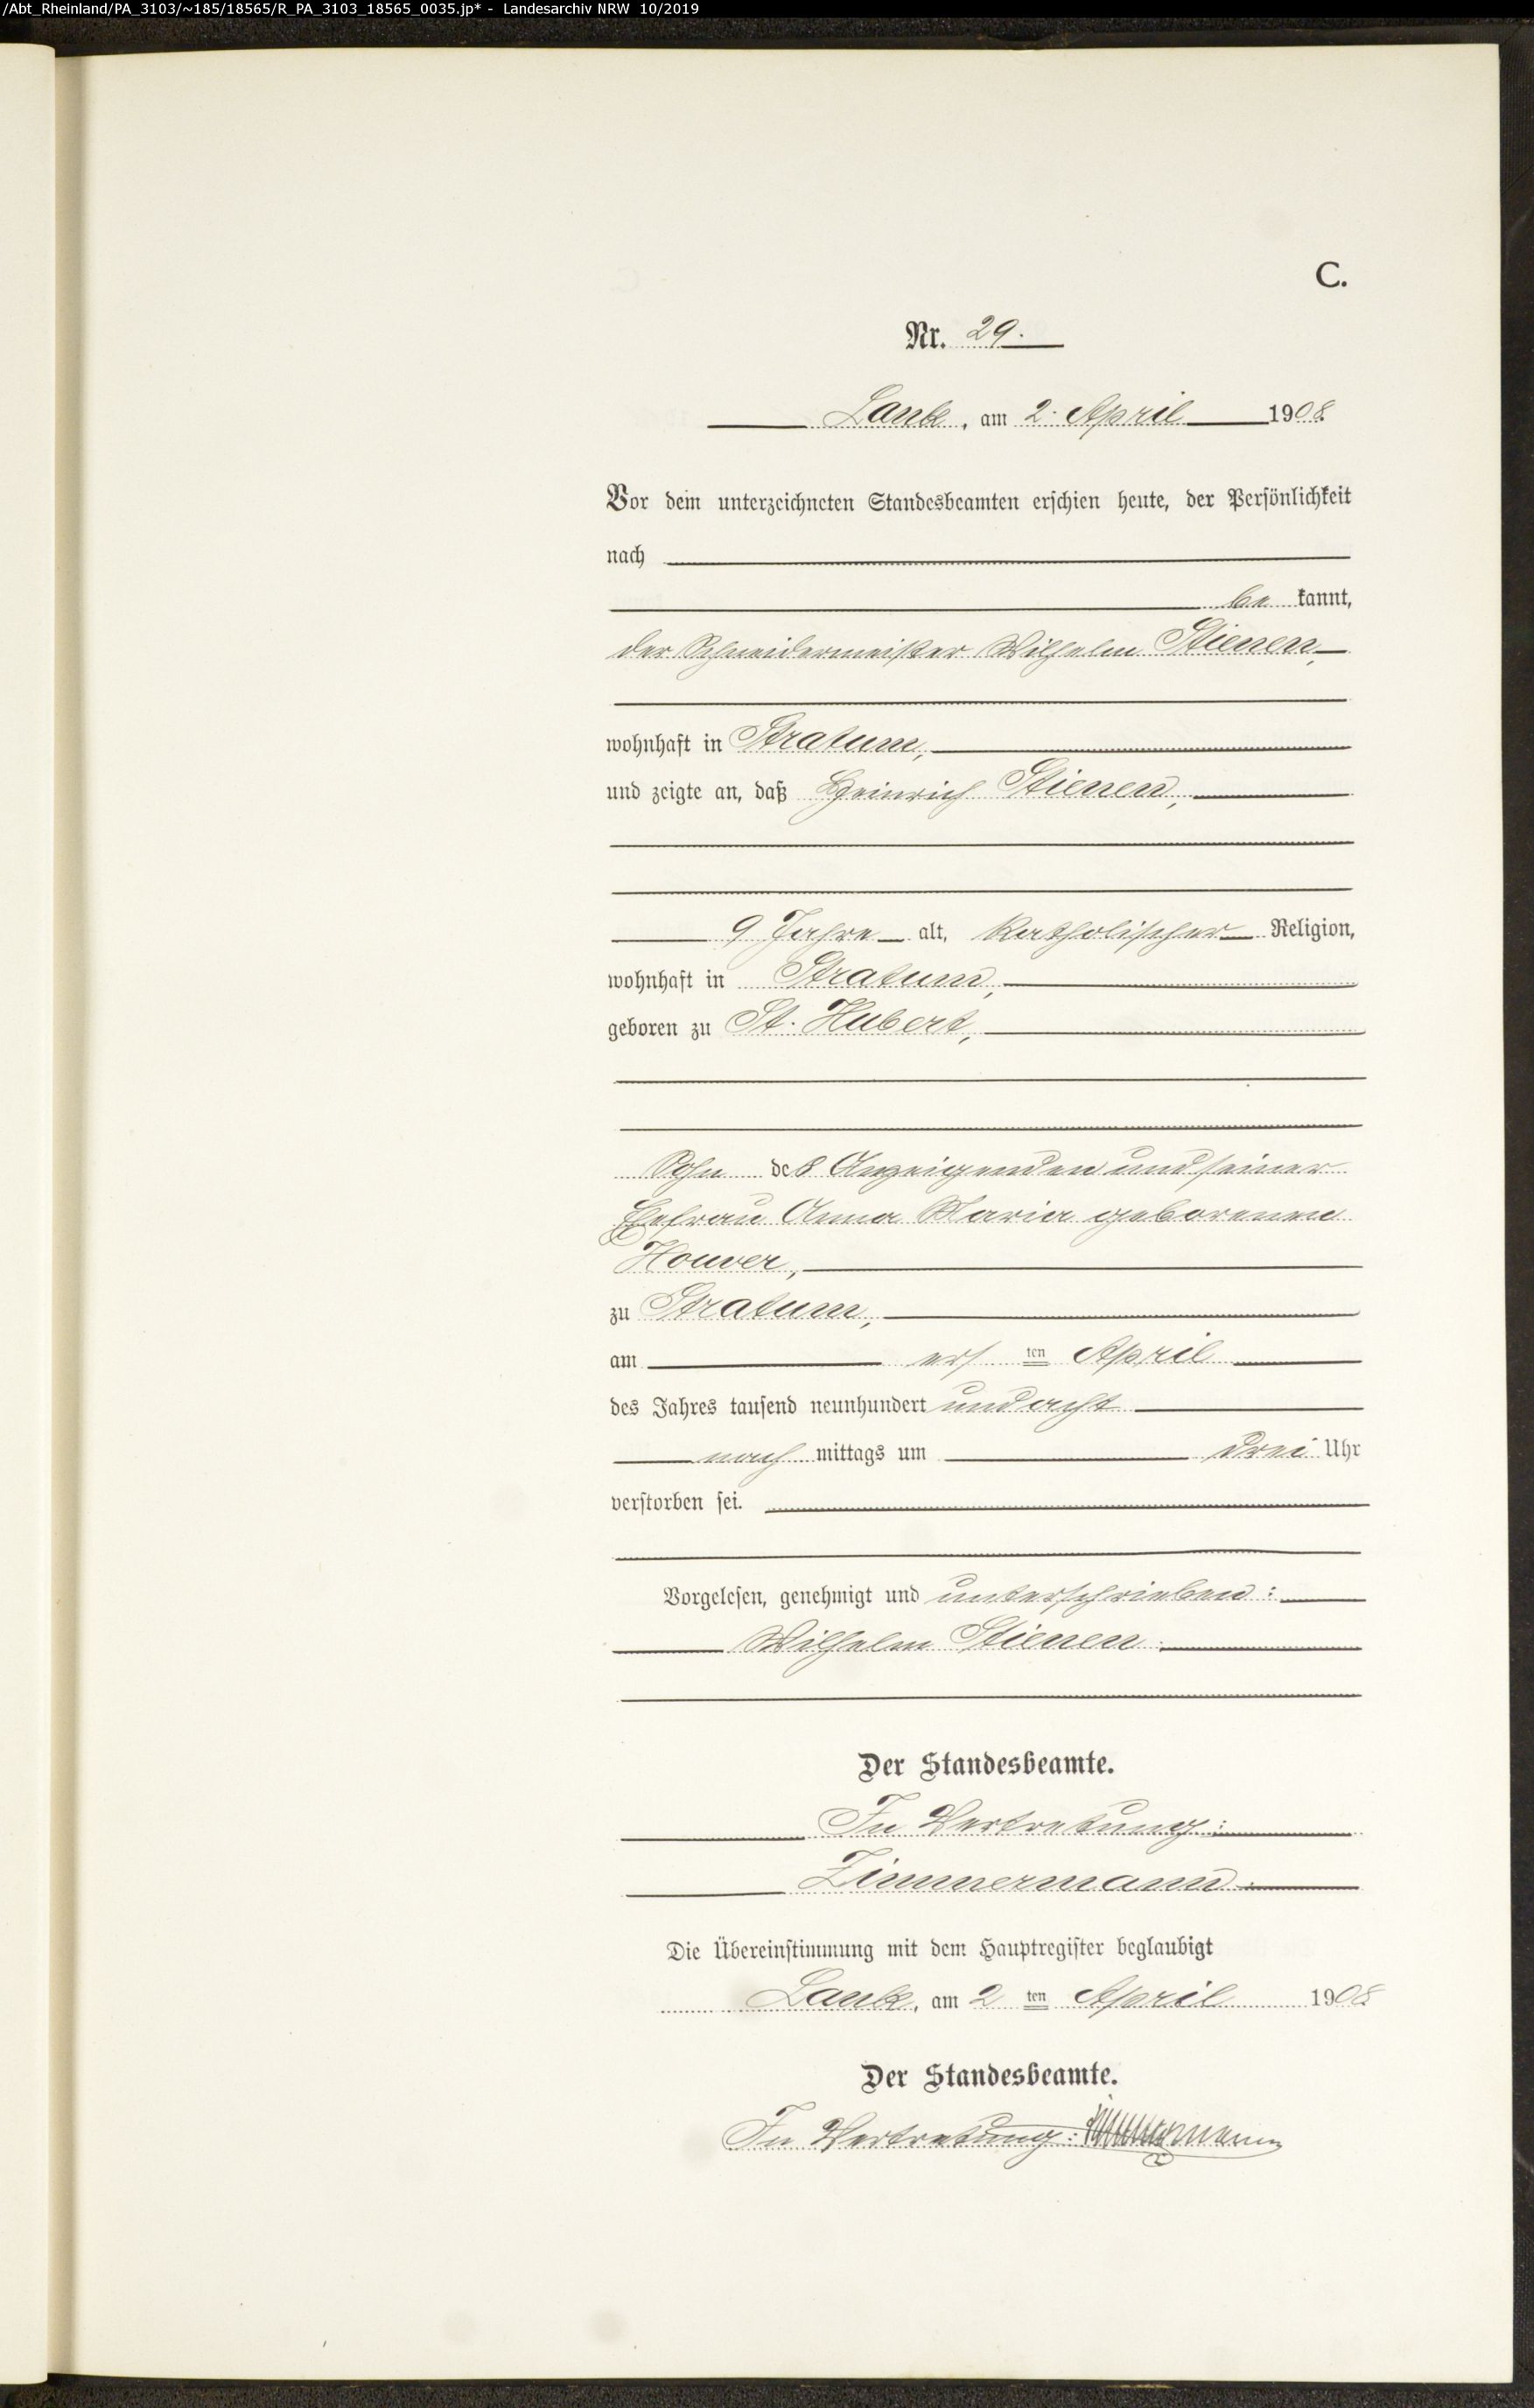 /Abt_Rheinland/PA_3103/~185/18565/R_PA_3103_18565_0035.jp* - Landesarchiv NRW 10/2019
C.
Nr. 29.
Lank, am 2. April 1908.
Vor dem unterzeichneten Standesbeamten erschien heute, der Persönlichkeit
nach
be kannt,
der Schneidermeister Wilhelm Stienen,
wohnhaft in Stratum,
und zeigte an, daß Heinrich Stienen,
9 Jahre alt, katholischer Religion,
wohnhaft in Stratum,
geboren zu St. Hubert,
Sohn des Anzeigenden und seiner
Ehefrau Anna Maria geborenen
Houver,
zu Stratum,
am ersten April
des Jahres tausend neunhundert und acht
nach mittags um drei Uhr
verstorben sei.
Vorgelesen, genehmigt und unterschrieben:
Wilhelm Stienen.
Der Standesbeamte.
In Vertretung:
Zimmermann.
Die Übereinstimmung mit dem Hauptregister beglaubigt
Lank, am 2ten April 1908
Der Standesbeamte.
In Vertretung: Zimmermann